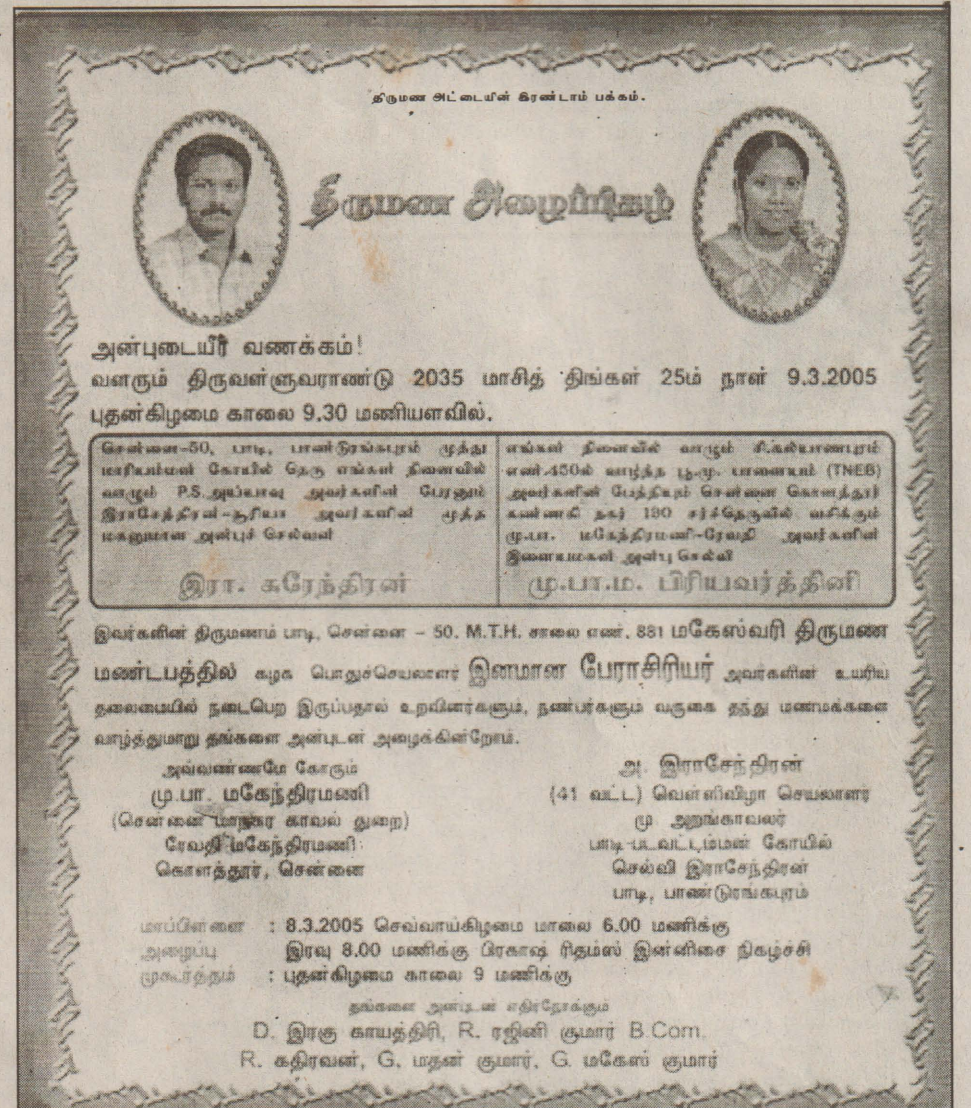 திருமண அட்டையின் இரண்டாம் பக்கம்.
திருமண அழைப்பிதழ்
அன்புடையீர் வணக்கம்!
வளரும் திருவள்ளுவராண்டு 2035 மாசித் திங்கள் 25ம் நாள் 9.3.2005
புதன்கிழமை காலை 9.30 மணியளவில்.
சென்னை-50, பாடி, பாண்டுரங்கபுரம் முத்து
மாரியம்மன் கோயில் தெரு எங்கள் நினைவில்
வாழும் P.S.அய்யாவு அவர்களின் பேரனும்
இராசேத்திரன்-சூரியா அவர்களின் மூத்த
மகனுமான அன்புச் செல்வன்
இரா. சுரேந்திரன்
எங்கள் நினைவில் வாழும் சி.கல்யாணபுரம்
எண்.450ல் வாழ்ந்த பூ.மு. பாளையம் (TNEB)
அவர்களின் பேத்தியும் சென்னை கொளத்தூர்
கண்ணகி நகர் 190 சர்ச்தெருவில் வசிக்கும்
மு.பா. மகேந்திரமணி-ரேவதி அவர்களின்
இளையமகள் அன்பு செல்வி
மு.பா.ம. பிரியவர்த்தினி
இவர்களின் திருமணம் பாடி, சென்னை – 50. M.T.H. சாலை எண். 881 மகேஸ்வரி திருமண
மண்டபத்தில் கழக பொதுச்செயலாளர் இனமான பேராசிரியர் அவர்களின் உயரிய
தலைமையில் நடைபெற இருப்பதால் உறவினர்களும், நண்பர்களும் வருகை தந்து மணமக்களை
வாழ்த்துமாறு தங்களை அன்புடன் அழைக்கின்றோம்.
அவ்வண்ணமே கோரும்
மு.பா. மகேந்திரமணி
(சென்னை மாநகர காவல் துறை)
ரேவதி மகேந்திரமணி
கொளத்தூர், சென்னை
அ. இராசேந்திரன்
(41 வட்ட) வெள்ளிவிழா செயலாளர்
மு அறங்காவலர்
பாடி-படவட்டம்மன் கோயில்
செல்வி இராசேந்திரன்
பாடி, பாண்டுரங்கபுரம்
மாப்பிள்ளை : 8.3.2005 செவ்வாய்கிழமை மாலை 6.00 மணிக்கு
அழைப்பு இரவு 8.00 மணிக்கு பிரகாஷ் ரிதம்ஸ் இன்னிசை நிகழ்ச்சி
முகூர்த்தம் : புதன்கிழமை காலை 9 மணிக்கு
தங்களை அன்புடன் எதிர்நோக்கும்
D. இரகு காயத்திரி, R. ரஜினி குமார் B.Com.
R. கதிரவன், G. மதன் குமார், G. மகேஸ் குமார்